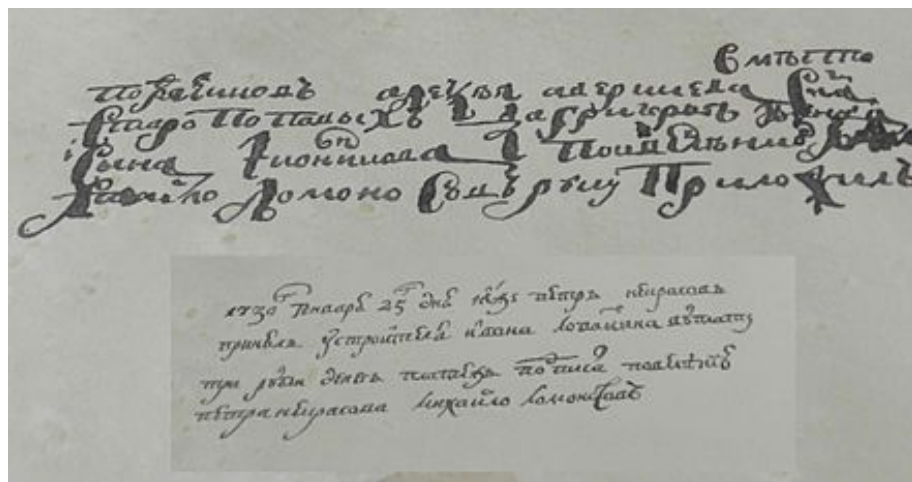 Вмѣсто
подрячиковъ алеѯѣя аверкиева сна
Старопоповыхъ да григорья Иванова
сына Иконникова по ихъ велѣнию
михаило Ломоносовъ руку приложилъ
1730 гѡ генваря 25 дня петръ некрасовъ
принялъ у строителя ивана лопаткина в уплату
три рубли денегъ подписалъ по велѣнию
петра некрасова михаило ломоносовъ